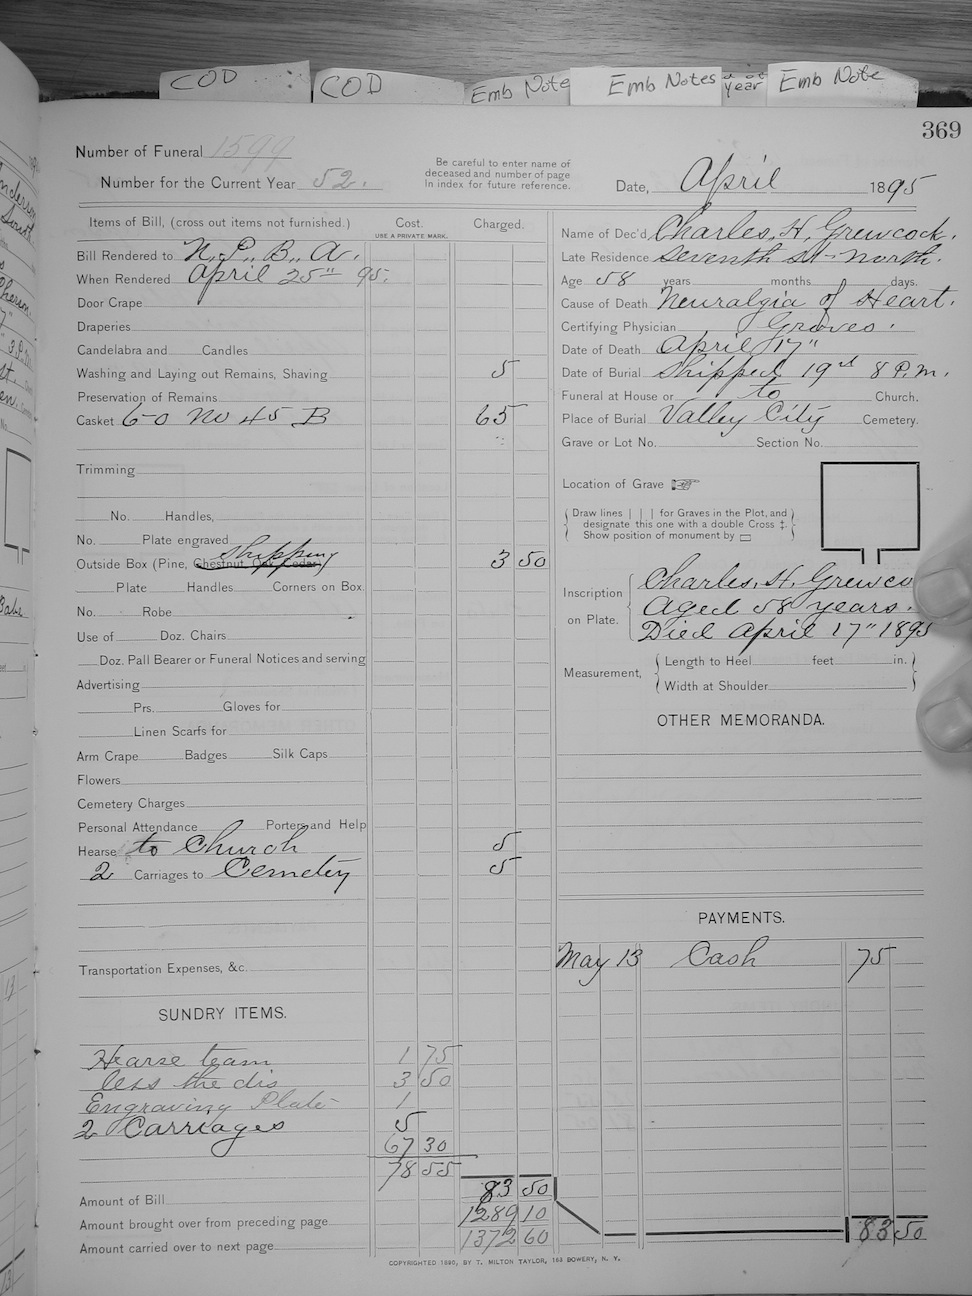 COD
COD
Emb Note
Emb Notes
year
Emb Note
369
Number of Funeral 1599
Number for the Current Year 52.
Be careful to enter name of
deceased and number of page
in index for future reference.
Date, April 1895
Items of Bill, (cross out items not furnished.) Cost. Charged.
USE A PRIVATE MARK.
Bill Rendered to N. P. B. A.
When Rendered April 25" 95.
Door Crape
Draperies
Candelabra and Candles
Washing and Laying out Remains, Shaving 5
Preservation of Remains
Casket 6-0 No 45 B 65
Trimming
No. Handles,
No. Plate engraved
shipping
Outside Box (Pine, Chestnut, Oak, Cedar) 3 50
Plate Handles Corners on Box.
No. Robe
Use of Doz. Chairs
Doz. Pall Bearer or Funeral Notices and serving
Advertising
Prs. Gloves for
Linen Scarfs for
Arm Crape Badges Silk Caps
Flowers
Cemetery Charges
Personal Attendance Porters and Help
Hearse to Church 5
2 Carriages to Cemetery 5
Transportation Expenses, &c.
SUNDRY ITEMS.
Hearse team 1 75
less the dis 3 50
Engraving Plate 1
2 Carriages 5
67 30
78 55
Amount of Bill 83 50
Amount brought over from preceding page 1289 10
Amount carried over to next page 1372 60
Name of Dec'd Charles. H. Grewcock.
Late Residence Seventh St- North.
Age 58 years months days.
Cause of Death Neuralgia of Heart.
Certifying Physician Graves.
Date of Death April 17"
Date of Burial Shipped 19th 8 P.M.
Funeral at House or to Church.
Place of Burial Valley City Cemetery.
Grave or Lot No. Section No.
Location of Grave ☞
Draw lines | | | for Graves in the Plot, and
designate this one with a double Cross ‡.
Show position of monument by ▭
Inscription
on Plate.
Charles. H. Grewco
Aged 58 years.
Died April 17" 1895
Measurement,
Length to Heel feet in.
Width at Shoulder
OTHER MEMORANDA.
PAYMENTS.
May 13 Cash 75
83 50
COPYRIGHTED 1890, BY T. MILTON TAYLOR, 163 BOWERY, N. Y.